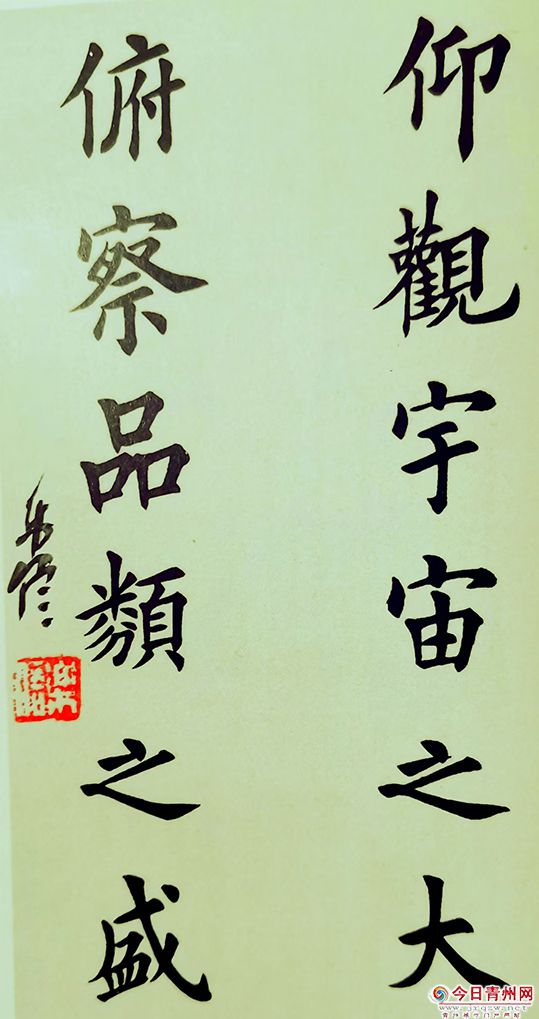 仰觀宇宙之大
俯察品類之盛
今日青州网
www.jrqzw.net